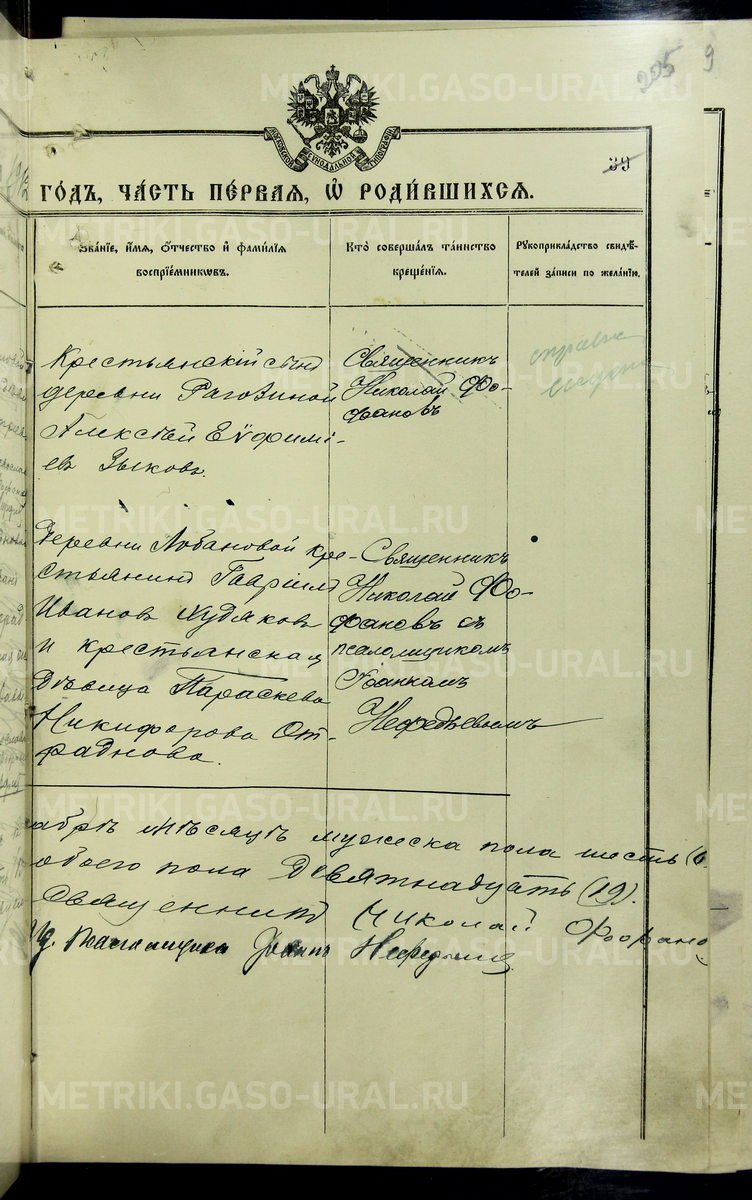 205 9
МОСКОВСКОЙ СѴНОДАЛЬНОЙ ТИПОГРАФІИ
39
ГО́ДЪ, ЧА́СТЬ ПЕ́РВАЯ, Ѡ҆ РОДИ́ВШИХСЯ.
Зва́ніе, и҆́мя, ѻ҆́тчество и҆ фами́лія
воспріе́мникѡвъ.
Кто̀ соверша́лъ та́инство
креще́нія.
Рукоприкла́дство свидѣ́-
телей за́писи по жела́нію.
Крестьянскій сынъ
деревни Рагозиной
Алексѣй Еѵѳимі-
евъ Зыковъ.
Священникъ
Николай Фо-
фановъ
справка
Деревни Лобановой кре-
стьянинъ Гавріилъ
Ивановъ Худяковъ
и крестьянская
дѣвица Параскева
Никифорова От-
раднова.
Священникъ
Николай Фо-
фановъ съ
псаломщикомъ
Іоанномъ
Нефедьевымъ
абрѣ мѣсяцѣ мужеска пола шесть (6
обоего пола девятнадцать (19).
Священникъ Николай Фофано
Псаломщика Іоаннъ Нефедьевъ
METRIKI.GASO-URAL.RU